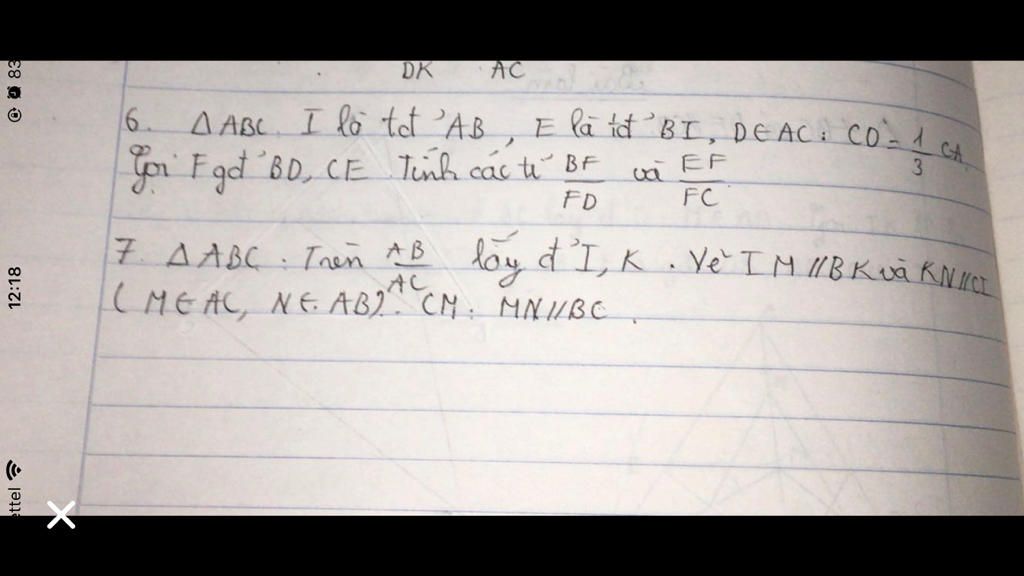 DK AC
6. ΔABC. I là tđ'AB, E là tđ'BI, D∈AC: CD = 1/3 CA
Gọi F gđ'BD, CE. Tính các tỉ BF/FD và EF/FC.
7. ΔABC. Trên AB/AC lấy đ'I, K. Vẽ IM//BK và KN//CI
(M∈AC, N∈AB). CM: MN//BC.
12:18
83